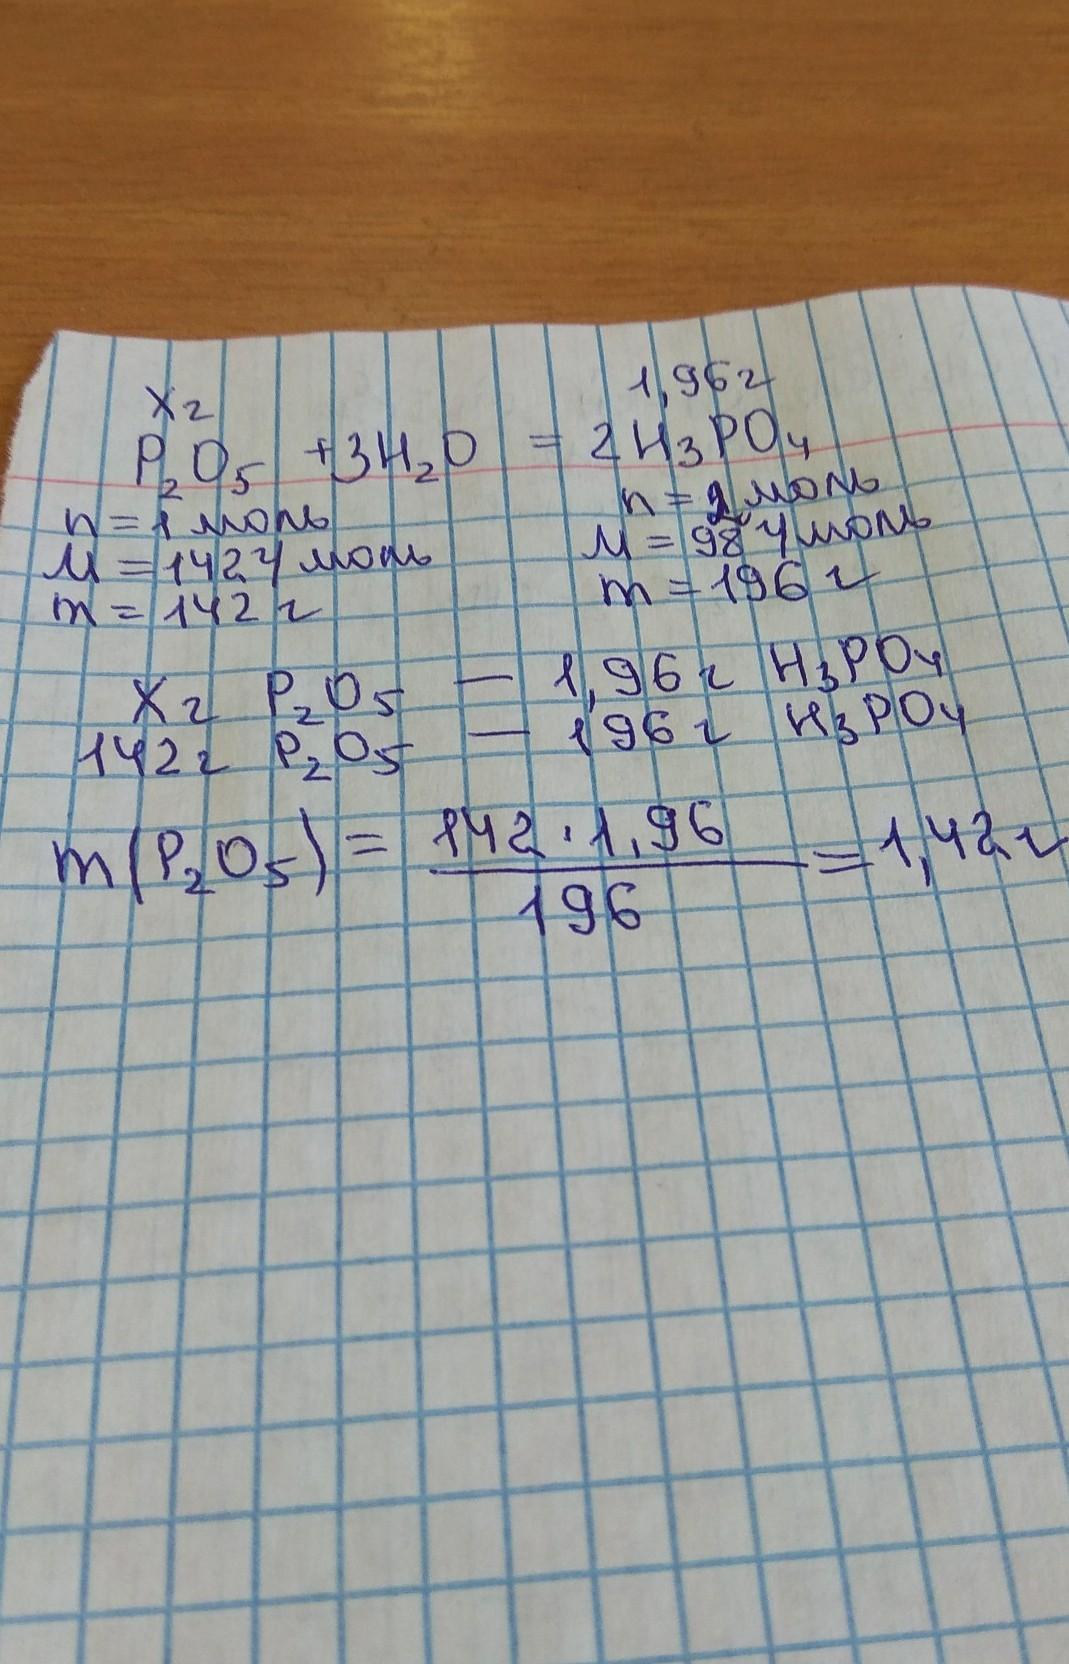 xг 1,96г
P₂O₅ +3H₂O = 2H₃PO₄
n = 1 моль n = 2 моль
M = 142 г/моль M = 98 г/моль
m = 142 г m = 196 г
xг P₂O₅ — 1,96 г H₃PO₄
142г P₂O₅ — 196 г H₃PO₄
m(P₂O₅) = 142 · 1,96 / 196 = 1,42 г